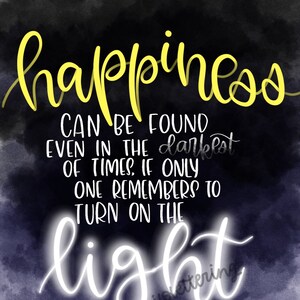 happiness
CAN BE FOUND
EVEN IN THE darkest
OF TIMES, IF ONLY
ONE REMEMBERS TO
TURN ON THE
light